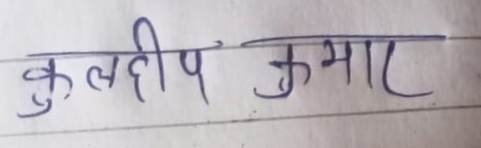 कुलदीप कुमार